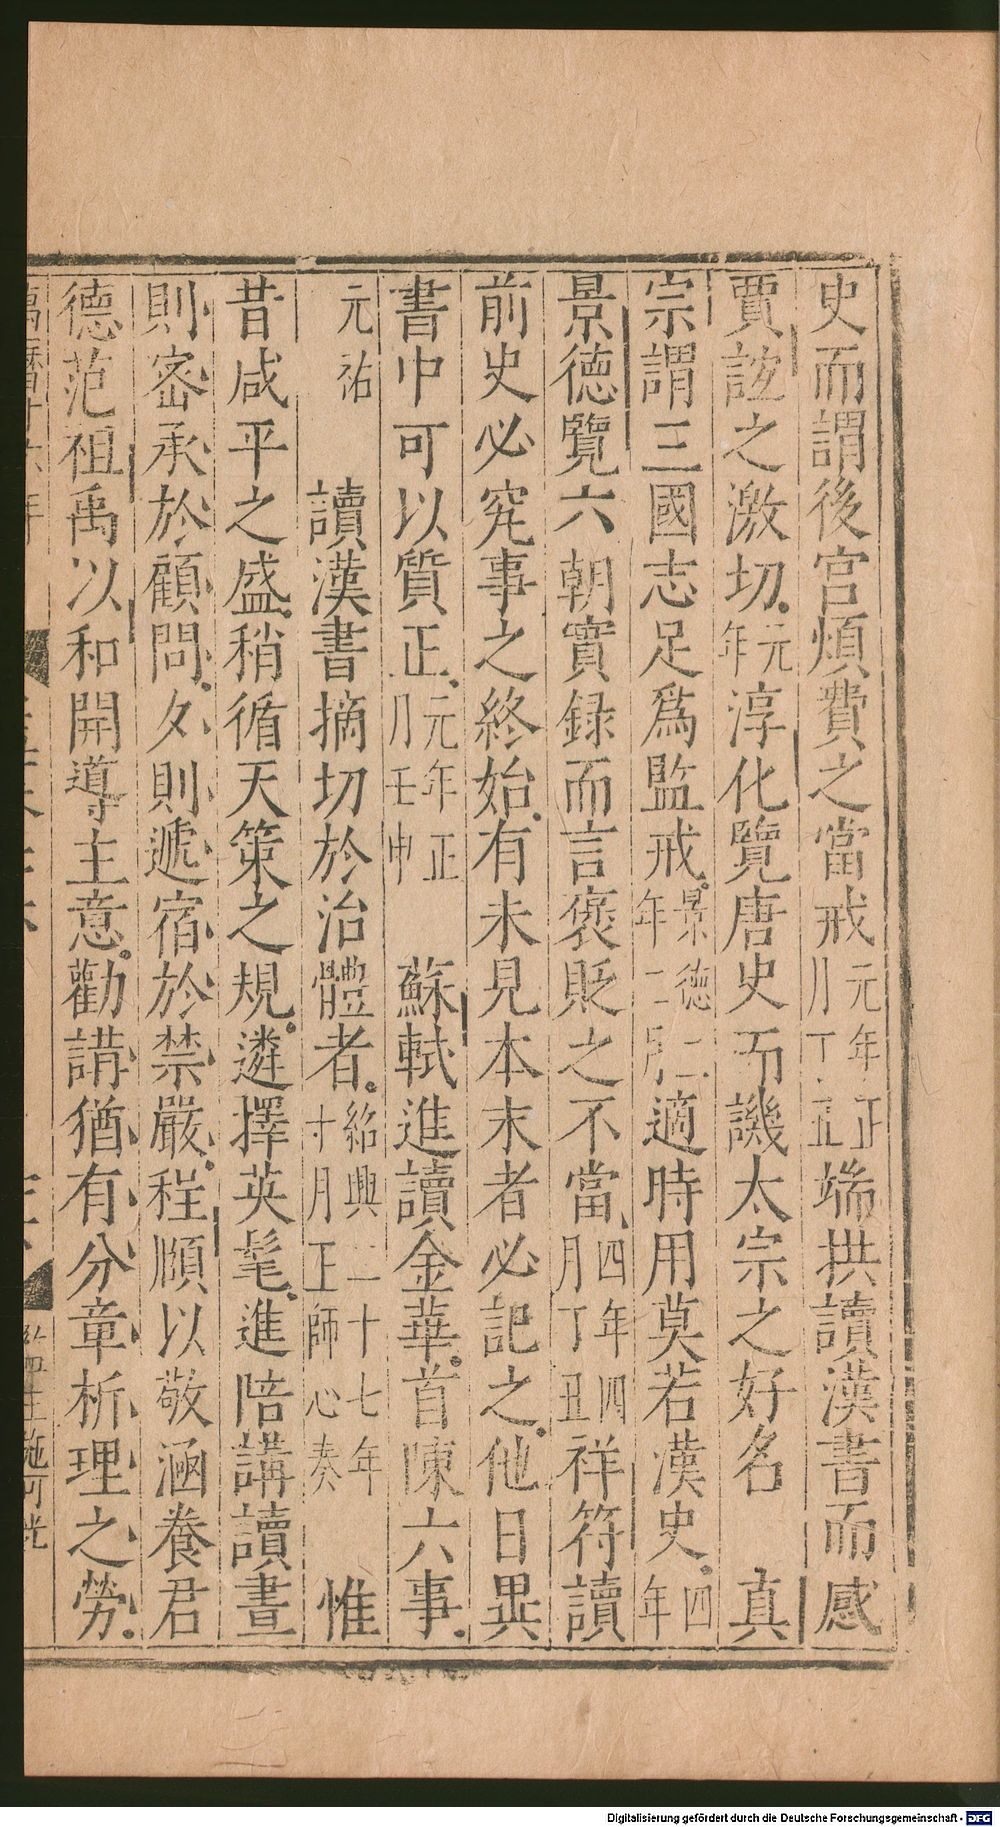 史而謂後宮煩費之當戒元年正月丁丑端拱讀漢書而感
賈誼之激切元年淳化覽唐史而譏太宗之好名　真
宗謂三國志足爲監戒景德二年二月適時用莫若漢史四年
景德覽六朝實録而言褒貶之不當四年四月丁丑祥符讀
前史必究事之終始有未見本末者必記之他日異
書中可以質正元年正月壬申　蘇軾進讀金華首陳六事
元祐　讀漢書摘切於治體者紹興二十七年十月正師心奏　惟
昔咸平之盛稍循天策之規遴擇英髦進陪講讀晝
則密承於顧問夕則遞宿於禁嚴程頤以敬涵養君
德范祖禹以和開導主意勸講猶有分章析理之勞
萬曆十六年
Digitalisierung gefördert durch die Deutsche Forschungsgemeinschaft - DFG